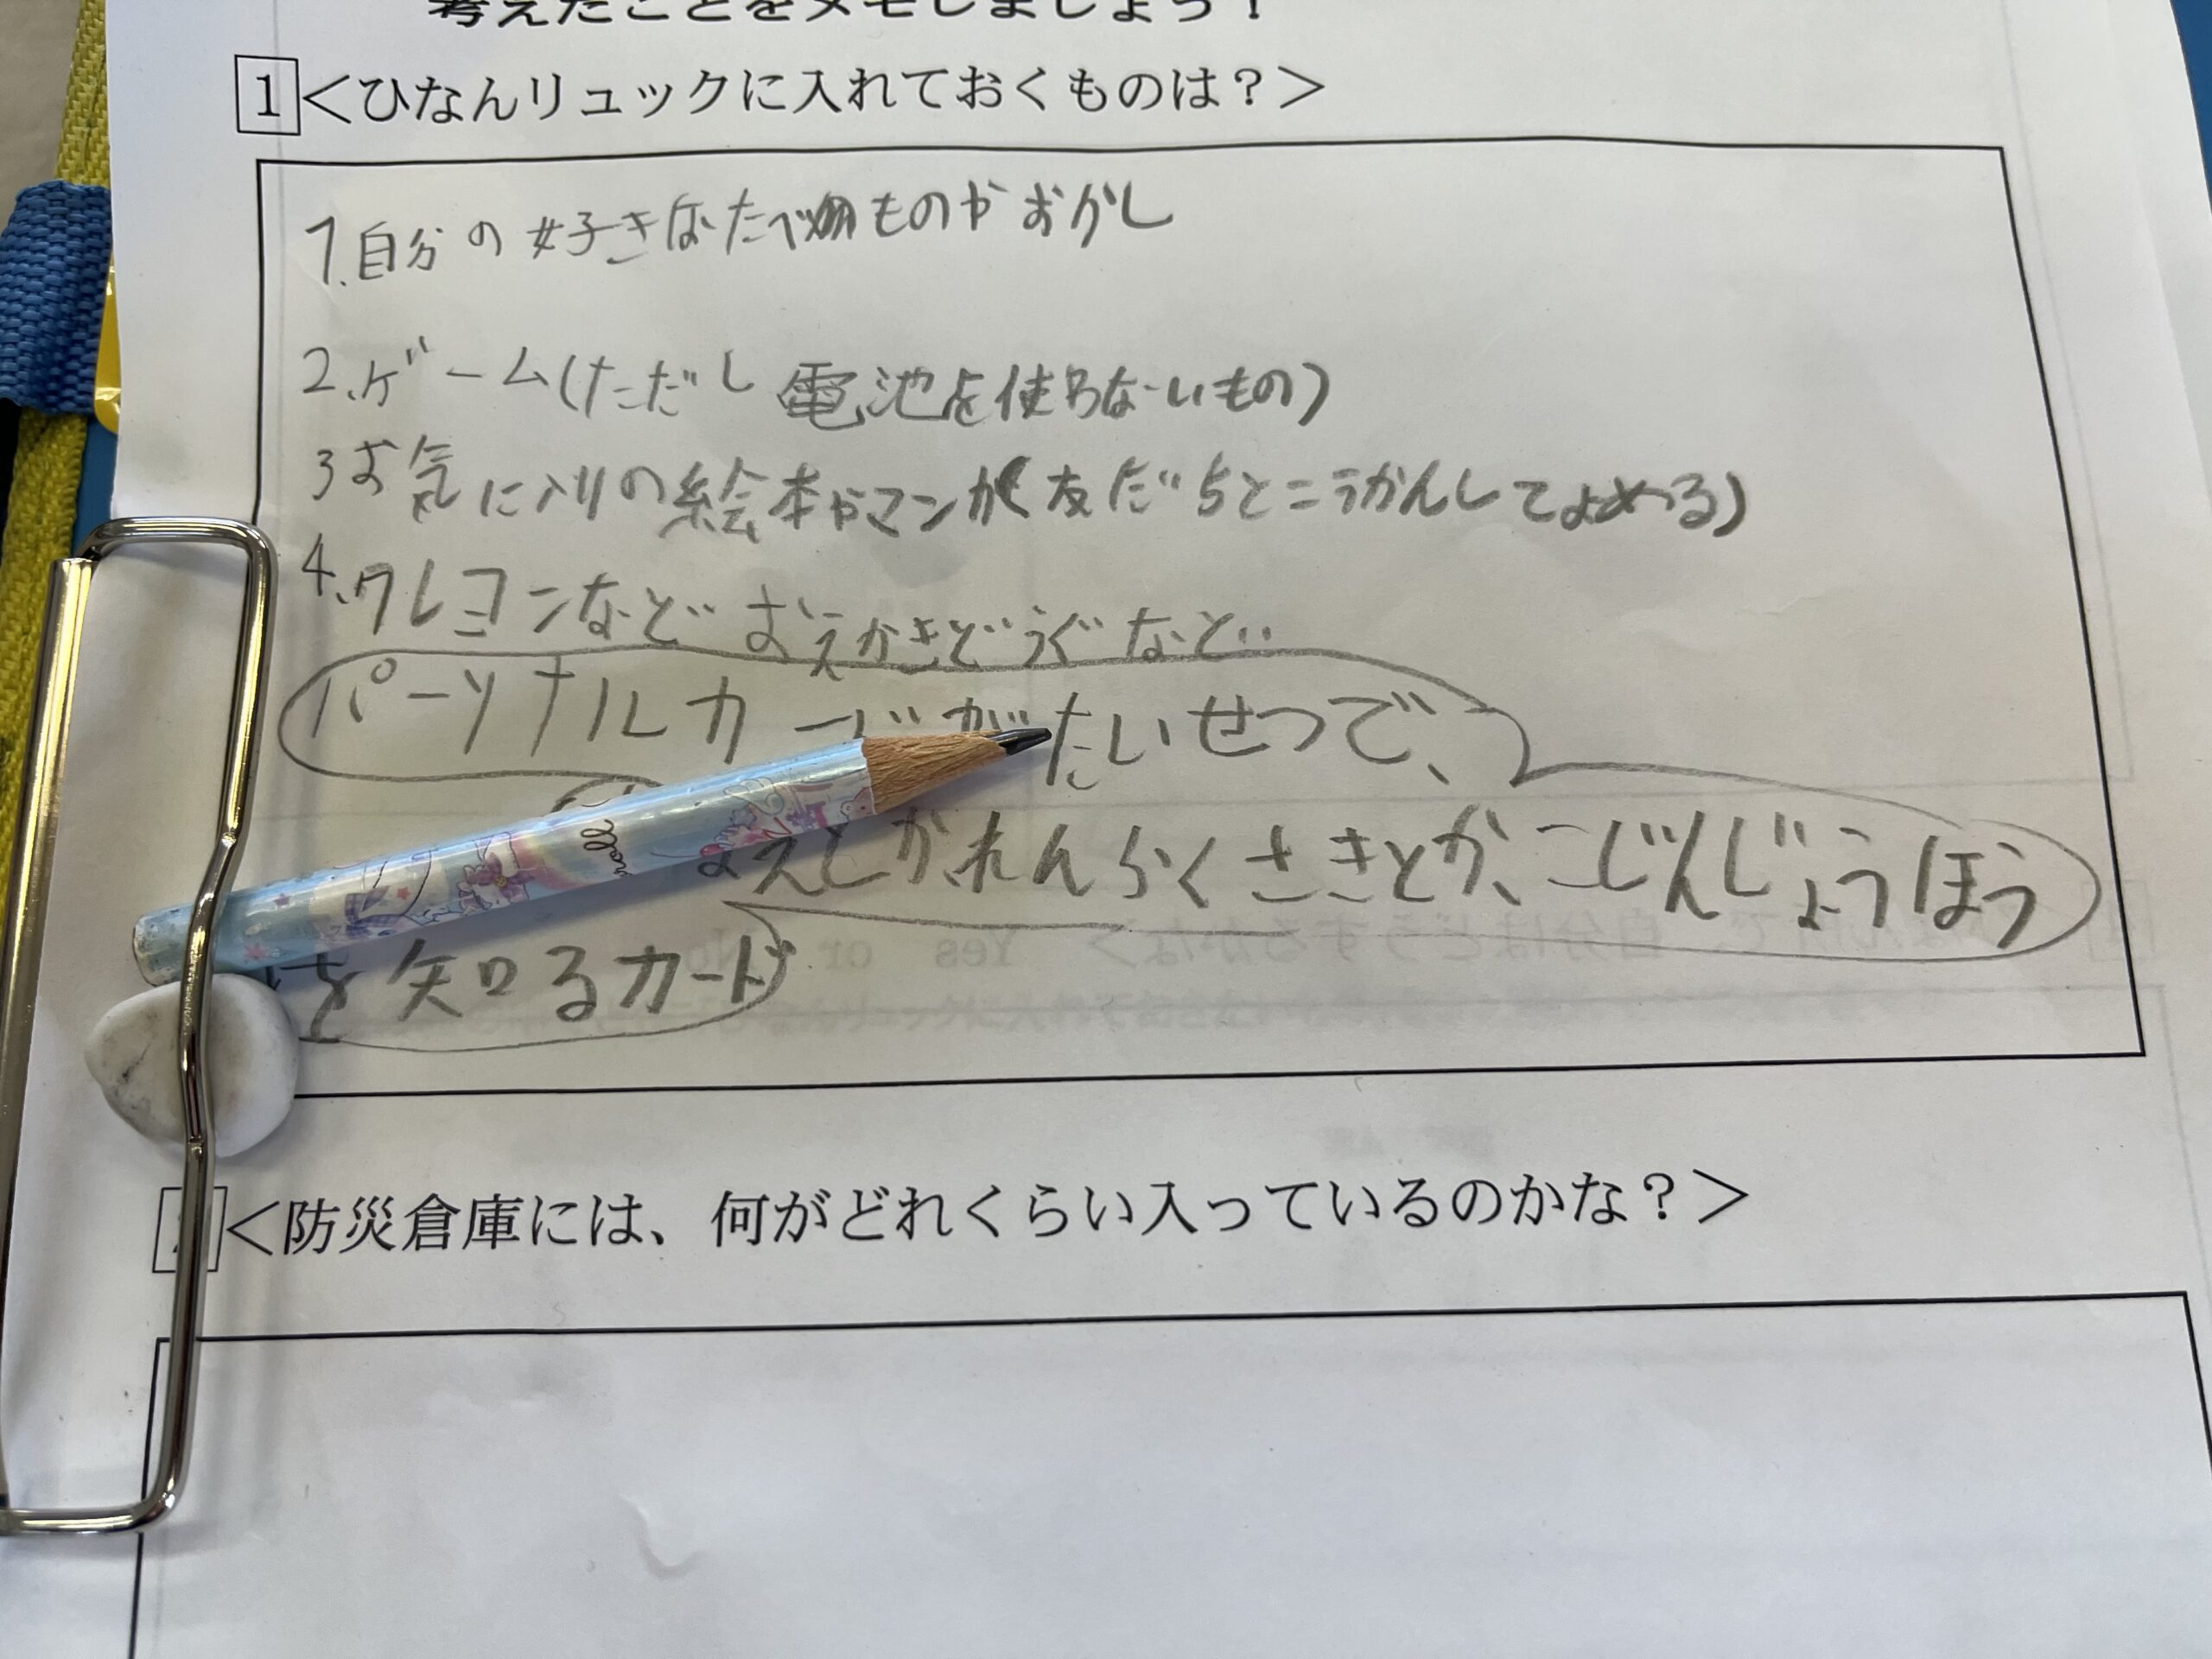 考えたことをメモしましょう！
1 ＜ひなんリュックに入れておくものは？＞
1.自分の好きなたべものやおかし
2.ゲーム(ただし電池を使わないもの)
3お気に入りの絵本やマンガ(友だちとこうかんしてよめる)
4.クレヨンなどおえかきどうぐなど..
パーソナルカードがたいせつで、
れんらくさきとか、こじんじょうほう
を知るカード
＜防災倉庫には、何がどれくらい入っているのかな？＞